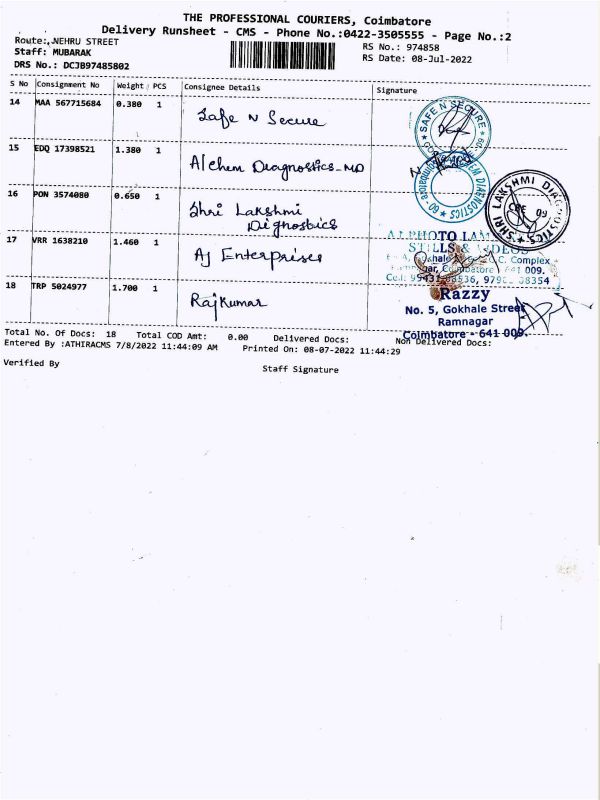 THE PROFESSIONAL COURIERS, Coimbatore
Delivery Runsheet - CMS - Phone No.:0422-3505555 - Page No.:2
Route:,NEHRU STREET
RS No.: 974858
Staff: MUBARAK
RS Date: 08-Jul-2022
DRS No.: DCJB97485802
S No Consignment No Weight PCS Consignee Details Signature
14 MAA 567715684 0.380 1 Safe N Secure
SAFE N SECURE
15 EDQ 17398521 1.380 1 Alchem Diagnostics-MD
DIAGNOSTICS
16 PON 3574080 0.650 1 Shri Lakshmi
Dignostics
SHRI LAKSHMI DIAGNOSTICS
CBE 09
17 VRR 1638210 1.460 1 AJ Enterprises
PHOTO LAM
STILLS &
Gokhale C. Complex
Coimbatore 641 009.
18 TRP 5024977 1.700 1 RajKumar
Razzy
No. 5, Gokhale Street
Ramnagar
Coimbatore - 641 009.
Total No. Of Docs: 18 Total COD Amt: 0.00 Delivered Docs: Non Delivered Docs:
Entered By :ATHIRACMS 7/8/2022 11:44:09 AM Printed On: 08-07-2022 11:44:29
Verified By
Staff Signature